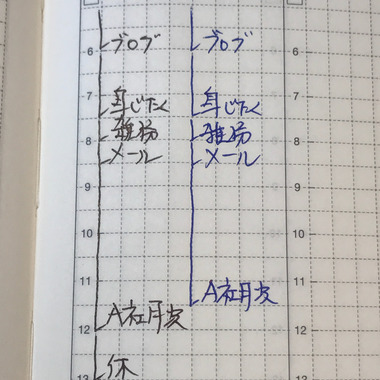 6 ブログ ブログ 6
7 身じたく 身じたく 7
8 雑務 雑務 8
メール メール
9 9
10 10
11 A社月次 11
12 A社月次 12
13 休 13